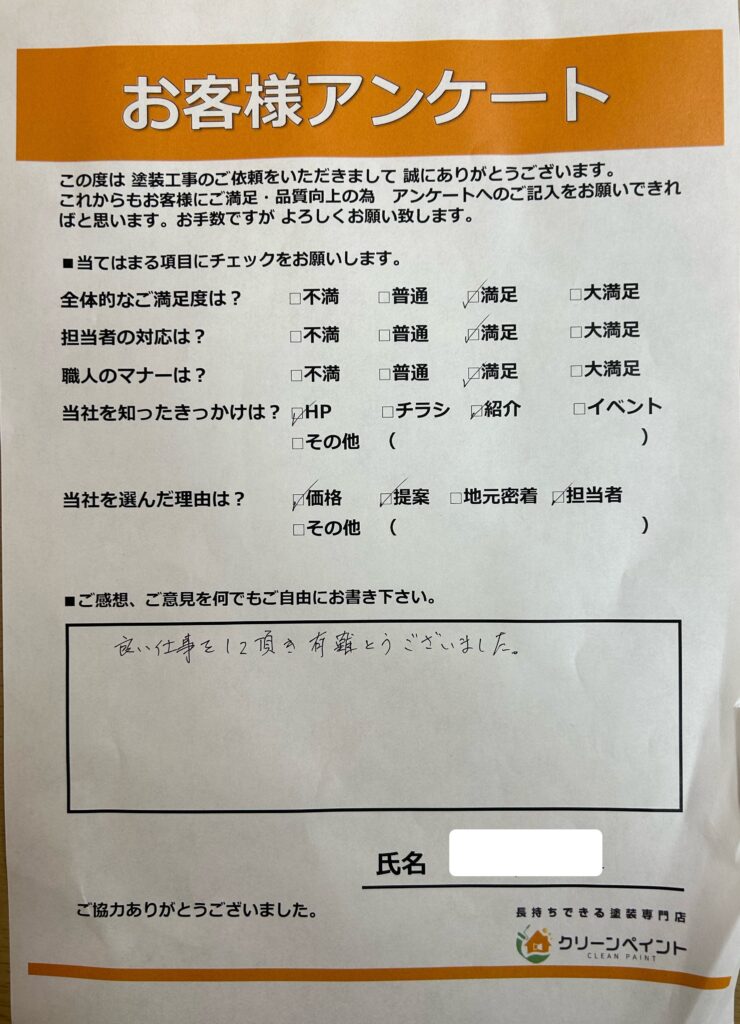 お客様アンケート
この度は 塗装工事のご依頼をいただきまして 誠にありがとうございます。
これからもお客様にご満足・品質向上の為　アンケートへのご記入をお願いできれ
ばと思います。お手数ですが よろしくお願い致します。
■当てはまる項目にチェックをお願いします。
全体的なご満足度は？ □不満 □普通 ☑満足 □大満足
担当者の対応は？ □不満 □普通 ☑満足 □大満足
職人のマナーは？ □不満 □普通 ☑満足 □大満足
当社を知ったきっかけは？ ☑HP □チラシ ☑紹介 □イベント
□その他 （ ）
当社を選んだ理由は？ ☑価格 ☑提案 □地元密着 ☑担当者
□その他 （ ）
■ご感想、ご意見を何でもご自由にお書き下さい。
良い仕事をして頂き有難とうございました。
氏名
ご協力ありがとうございました。
長持ちできる塗装専門店
クリーンペイント
CLEAN PAINT